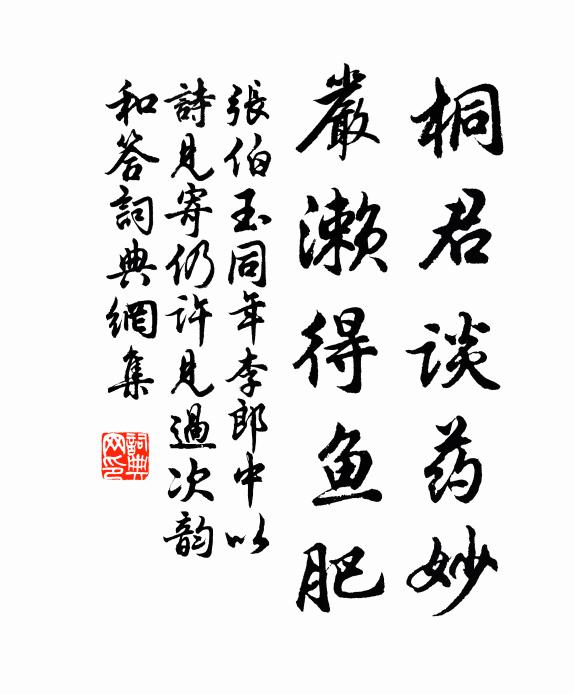 桐君谈药妙
嚴濑得鱼肥
張伯玉同年李郎中以
詩見寄仍許見過次韵
和答詞典網集
詞典
网印